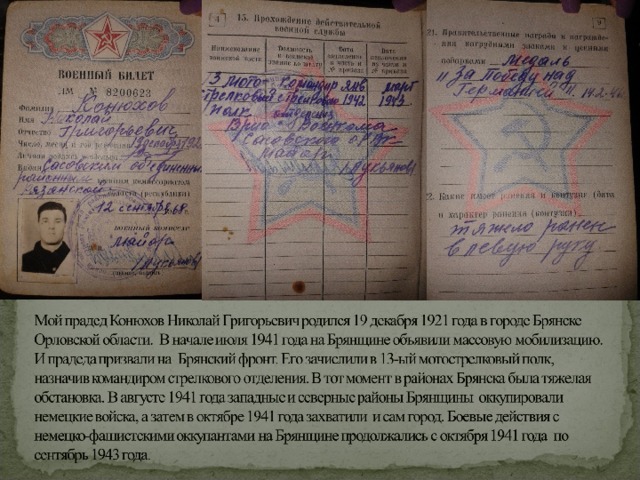 ВОЕННЫЙ БИЛЕТ
№ 8200623
Фамилия Конюхов
Имя Николай
Отчество Григорьевич
Сасовским объединенным
районным
Рязанской
12 сентября
майор
4
15. Прохождение действительной
военной службы
Наименование Должность Дата Дата
мото- командир янв март
стрелковый стрелкового 1942 1943
полк отделения
Сасовского
майор
9
21. Правительственные награды и награжде-
ния нагрудными знаками и ценными
подарками медаль
"За победу над
Германией"
22. Какие имеет ранения и контузии (дата
и характер ранения (контузии)
тяжело ранен
в левую руку
Мой прадед Конюхов Николай Григорьевич родился 19 декабря 1921 года в городе Брянске
Орловской области. В начале июля 1941 года на Брянщине объявили массовую мобилизацию.
И прадеда призвали на Брянский фронт. Его зачислили в 13-ый мотострелковый полк,
назначив командиром стрелкового отделения. В тот момент в районах Брянска была тяжелая
обстановка. В августе 1941 года западные и северные районы Брянщины оккупировали
немецкие войска, а затем в октябре 1941 года захватили и сам город. Боевые действия с
немецко-фашистскими оккупантами на Брянщине продолжались с октября 1941 года по
сентябрь 1943 года.